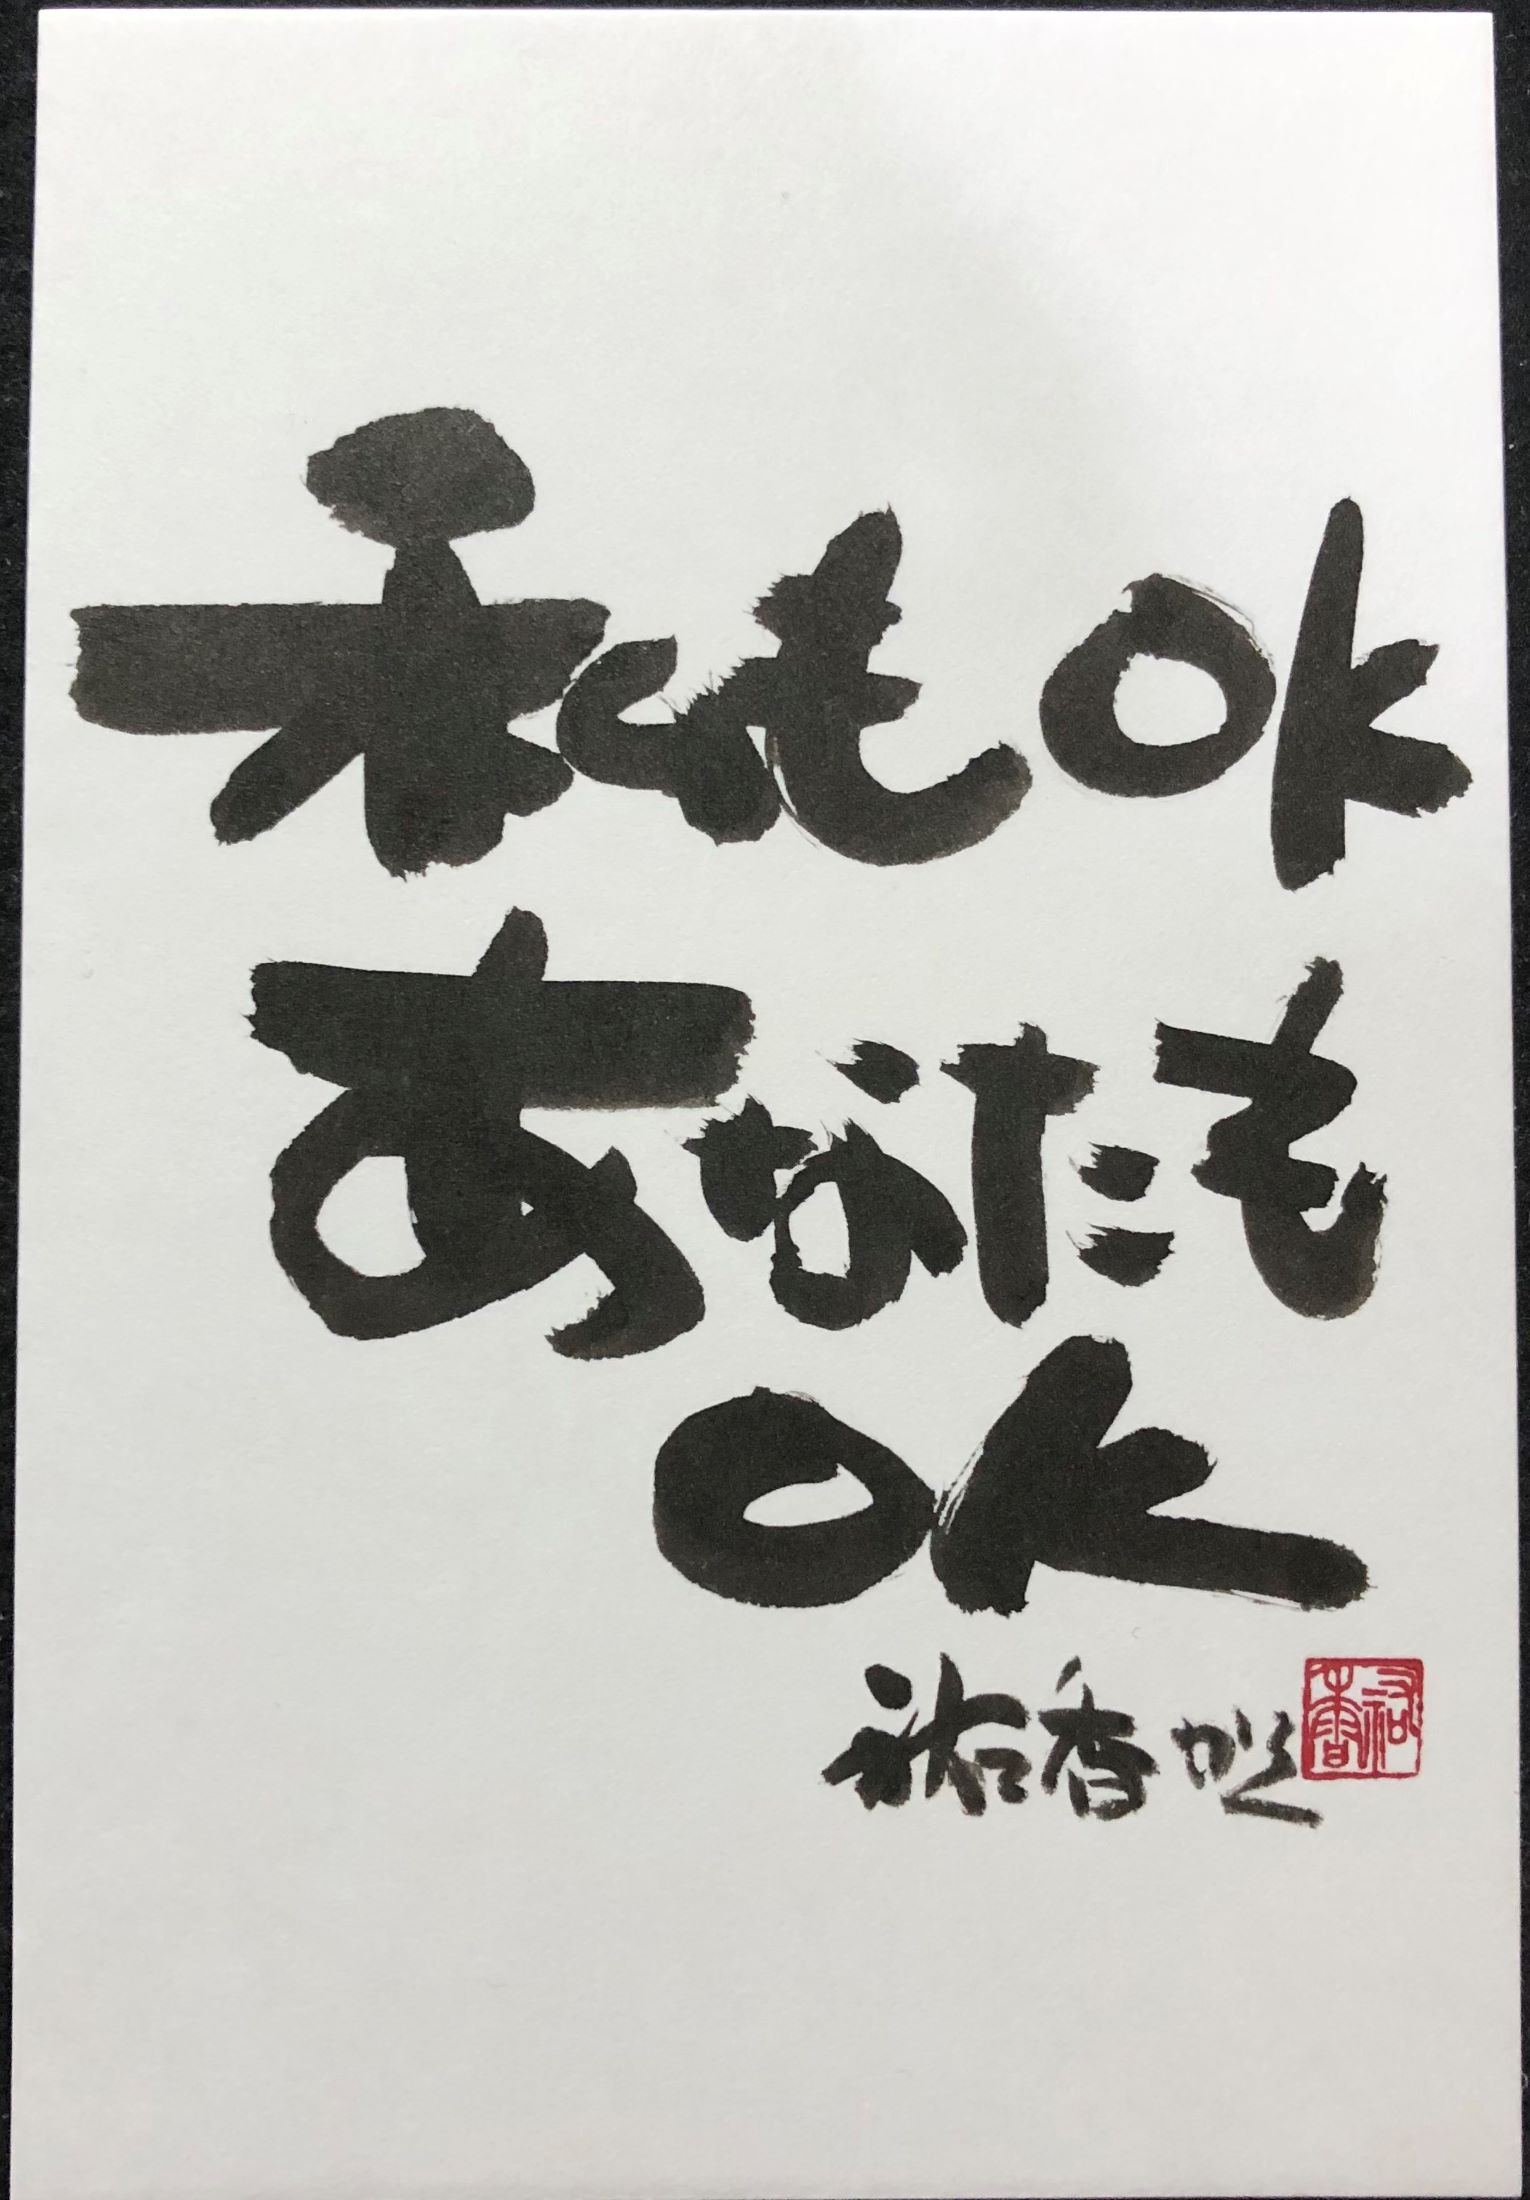 私もOK
あなたも
OK
祐香
祐香